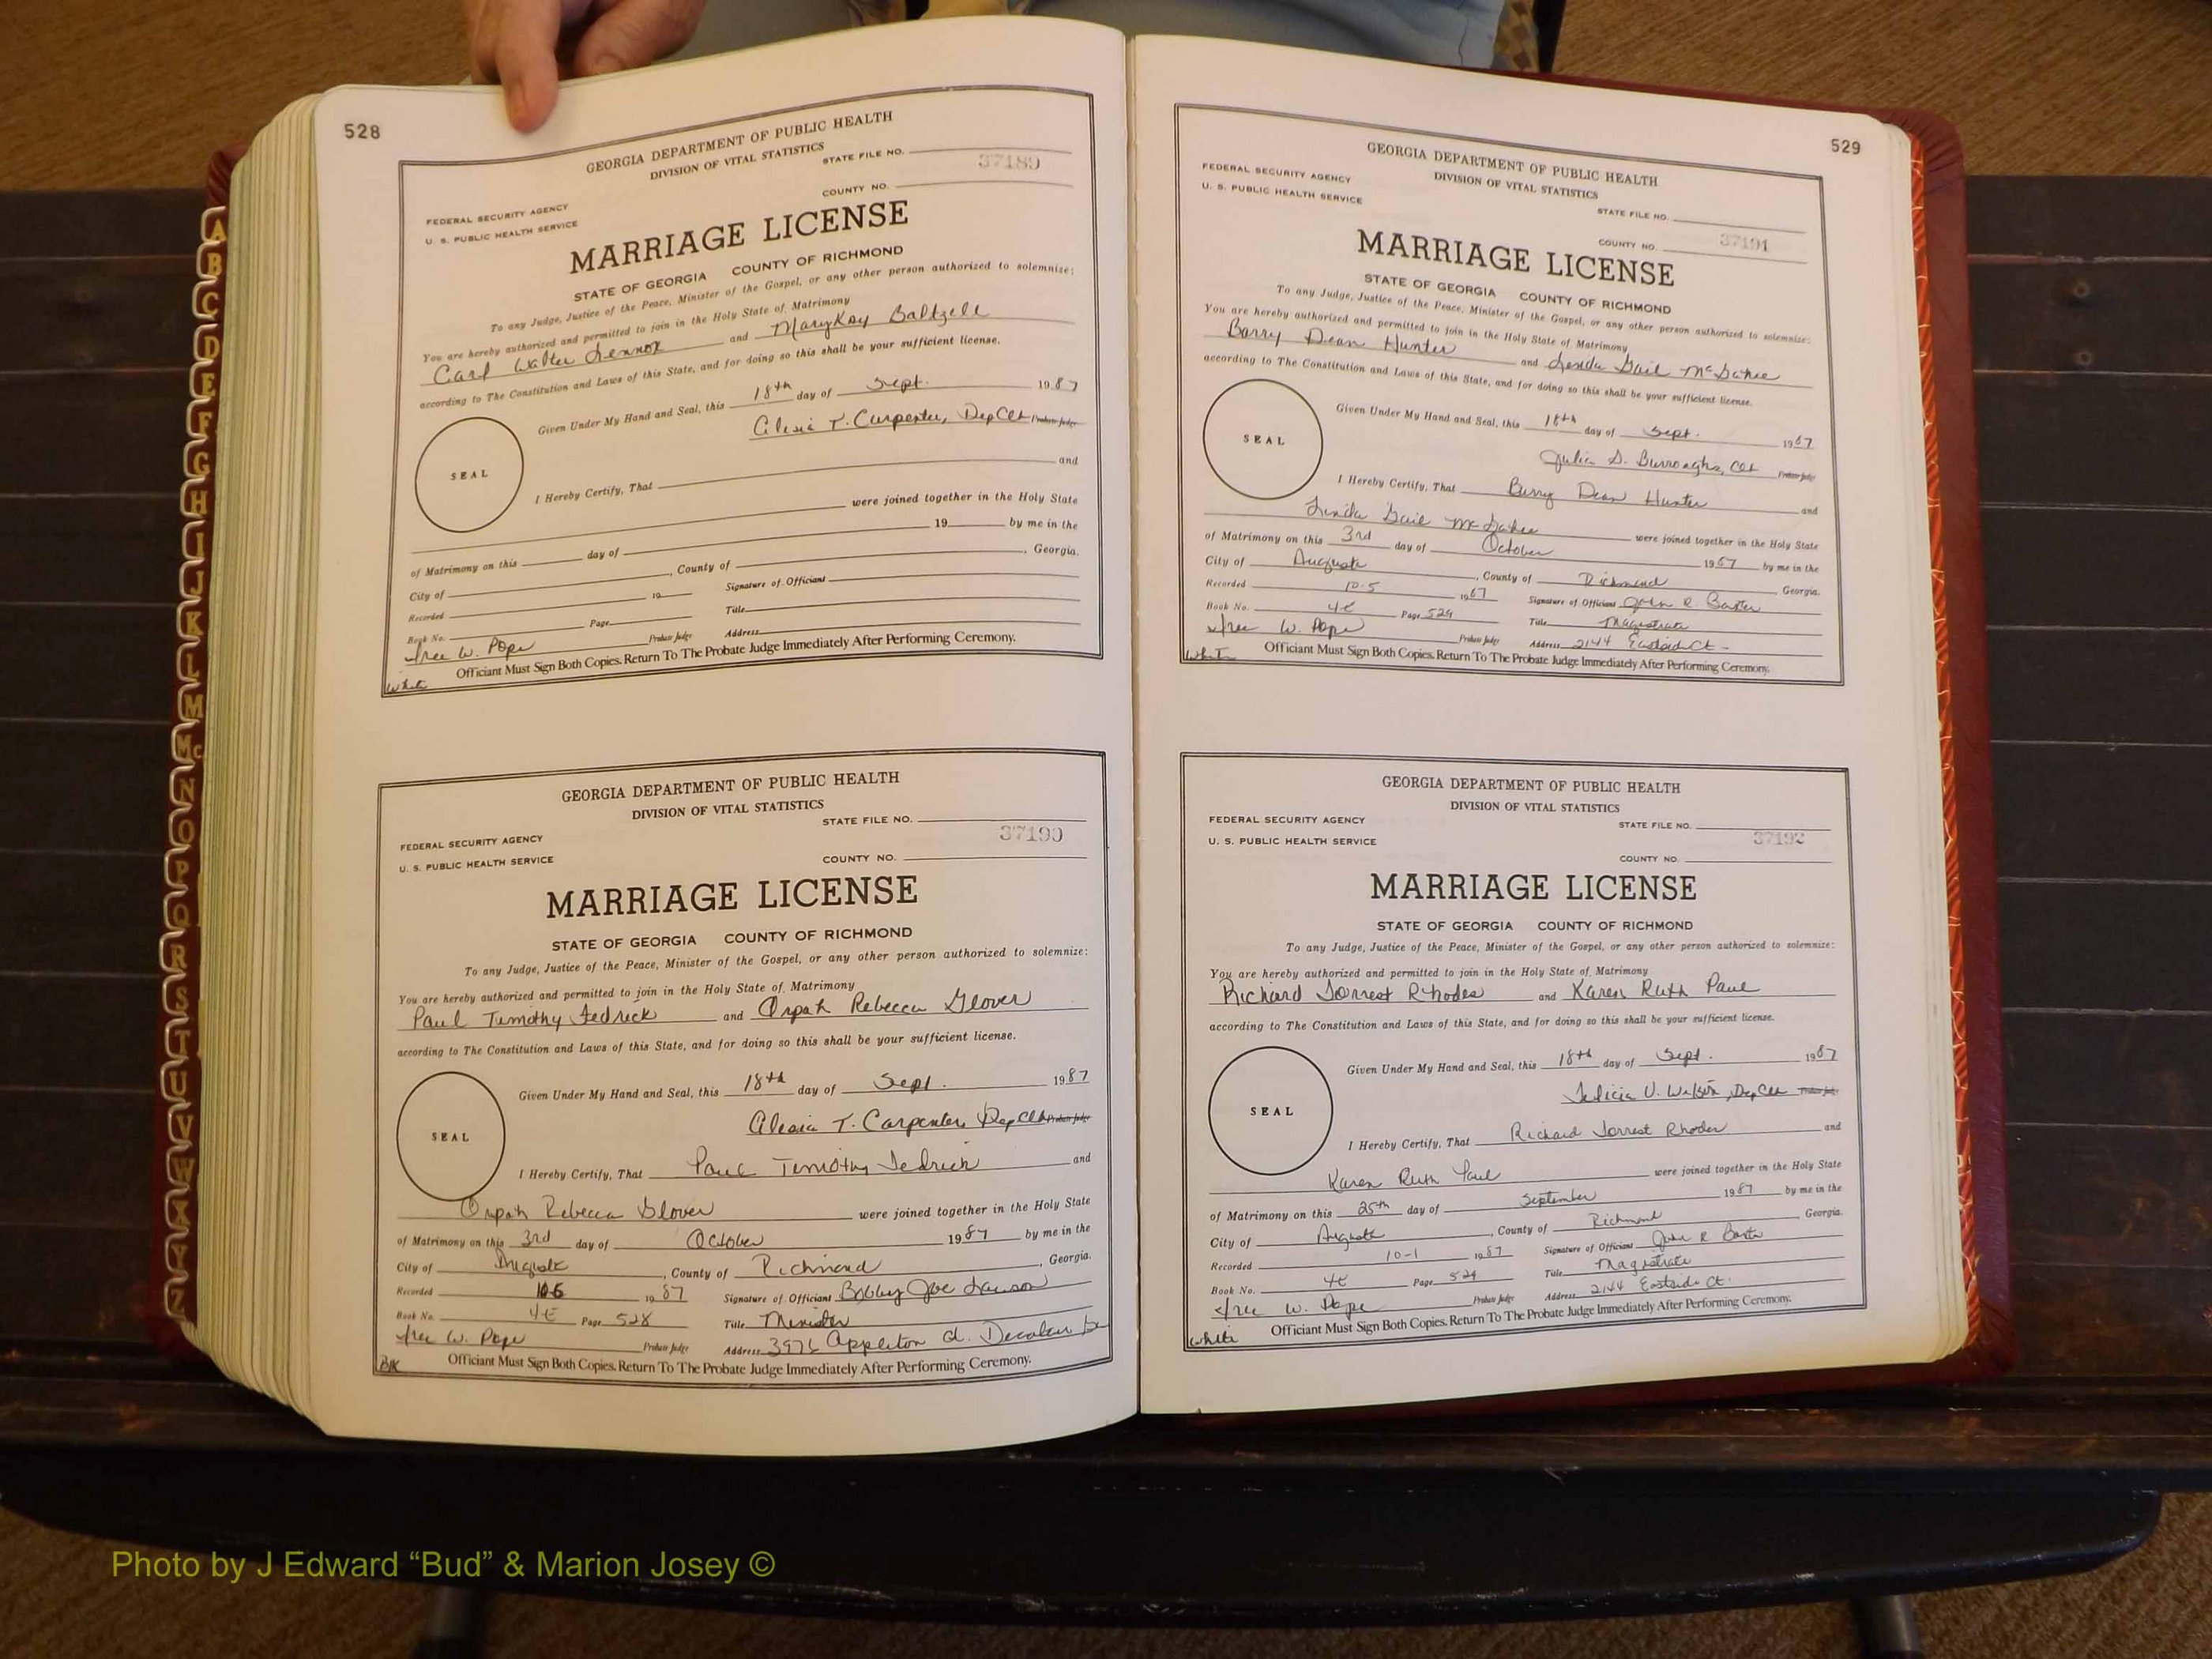 528
GEORGIA DEPARTMENT OF PUBLIC HEALTH
DIVISION OF VITAL STATISTICS
STATE FILE NO.
37189
COUNTY NO.
FEDERAL SECURITY AGENCY
U. S. PUBLIC HEALTH SERVICE
MARRIAGE LICENSE
STATE OF GEORGIA COUNTY OF RICHMOND
To any Judge, Justice of the Peace, Minister of the Gospel, or any other person authorized to solemnize:
You are hereby authorized and permitted to join in the Holy State of Matrimony
Carl Walter Lennox and MaryKay Baltzell
according to The Constitution and Laws of this State, and for doing so this shall be your sufficient license.
Given Under My Hand and Seal, this 18th day of Sept. 1987
Alesia T. Carpenter, Dep Clk Probate Judge
SEAL
I Hereby Certify, That and
were joined together in the Holy State
of Matrimony on this day of 19 by me in the
City of , County of , Georgia.
Recorded 19 Signature of Officiant
Book No. Page Title
W. Pope Probate Judge Address
White
Officiant Must Sign Both Copies. Return To The Probate Judge Immediately After Performing Ceremony.
GEORGIA DEPARTMENT OF PUBLIC HEALTH
DIVISION OF VITAL STATISTICS
STATE FILE NO.
37190
FEDERAL SECURITY AGENCY
U. S. PUBLIC HEALTH SERVICE
COUNTY NO.
MARRIAGE LICENSE
STATE OF GEORGIA COUNTY OF RICHMOND
To any Judge, Justice of the Peace, Minister of the Gospel, or any other person authorized to solemnize:
You are hereby authorized and permitted to join in the Holy State of Matrimony
Paul Timothy Fedrick and Orpah Rebecca Glover
according to The Constitution and Laws of this State, and for doing so this shall be your sufficient license.
Given Under My Hand and Seal, this 18th day of Sept. 1987
Alesia T. Carpenter, Dep Clk Probate Judge
SEAL
I Hereby Certify, That Paul Timothy Fedrick and
Orpah Rebecca Glover were joined together in the Holy State
of Matrimony on this 3rd day of October 1987 by me in the
City of Augusta , County of Richmond , Georgia.
Recorded 10-6 1987 Signature of Officiant Bobby Joe Lawson
Book No. 4E Page 528 Title Minister
W. Pope Probate Judge Address 3976 Appleton Decatur
Blk
Officiant Must Sign Both Copies. Return To The Probate Judge Immediately After Performing Ceremony.
529
GEORGIA DEPARTMENT OF PUBLIC HEALTH
DIVISION OF VITAL STATISTICS
FEDERAL SECURITY AGENCY
U. S. PUBLIC HEALTH SERVICE
STATE FILE NO.
37191
COUNTY NO.
MARRIAGE LICENSE
STATE OF GEORGIA COUNTY OF RICHMOND
To any Judge, Justice of the Peace, Minister of the Gospel, or any other person authorized to solemnize:
You are hereby authorized and permitted to join in the Holy State of Matrimony
Barry Dean Hunter and Linda Gail
according to The Constitution and Laws of this State, and for doing so this shall be your sufficient license.
Given Under My Hand and Seal, this 18th day of Sept. 1987
Julia S. Burroughs, Clk Probate Judge
SEAL
I Hereby Certify, That Barry Dean Hunter and
Linda Gail were joined together in the Holy State
of Matrimony on this 3rd day of October 1987 by me in the
City of Augusta , County of Richmond Georgia.
Recorded 10-5 1987 Signature of Officiant John R. Baxter
Book No. 4E Page 529 Title Magistrate
W. Pope Probate Judge Address 2144 Eastside Ct.
White
Officiant Must Sign Both Copies. Return To The Probate Judge Immediately After Performing Ceremony.
GEORGIA DEPARTMENT OF PUBLIC HEALTH
DIVISION OF VITAL STATISTICS
FEDERAL SECURITY AGENCY
STATE FILE NO.
37192
U. S. PUBLIC HEALTH SERVICE
COUNTY NO.
MARRIAGE LICENSE
STATE OF GEORGIA COUNTY OF RICHMOND
To any Judge, Justice of the Peace, Minister of the Gospel, or any other person authorized to solemnize:
You are hereby authorized and permitted to join in the Holy State of Matrimony
Richard Forrest Rhodes and Karen Ruth Paul
according to The Constitution and Laws of this State, and for doing so this shall be your sufficient license.
Given Under My Hand and Seal, this 18th day of Sept. 1987
Felicia V. Wilson, Dep Clk Probate Judge
SEAL
I Hereby Certify, That Richard Forrest Rhodes and
Karen Ruth Paul were joined together in the Holy State
of Matrimony on this 25th day of September 1987 by me in the
City of Augusta , County of Richmond , Georgia.
Recorded 10-1 1987 Signature of Officiant John R Baxter
Book No. 4E Page 529 Title Magistrate
W. Pope Probate Judge Address 2144 Eastside Ct.
White
Officiant Must Sign Both Copies. Return To The Probate Judge Immediately After Performing Ceremony.
A
B
C
D
E
F
G
H
I
J
K
L
M
Mc
N
O
P
Q
R
S
T
U
V
W
X
Y
Z
Photo by J Edward “Bud” & Marion Josey ©